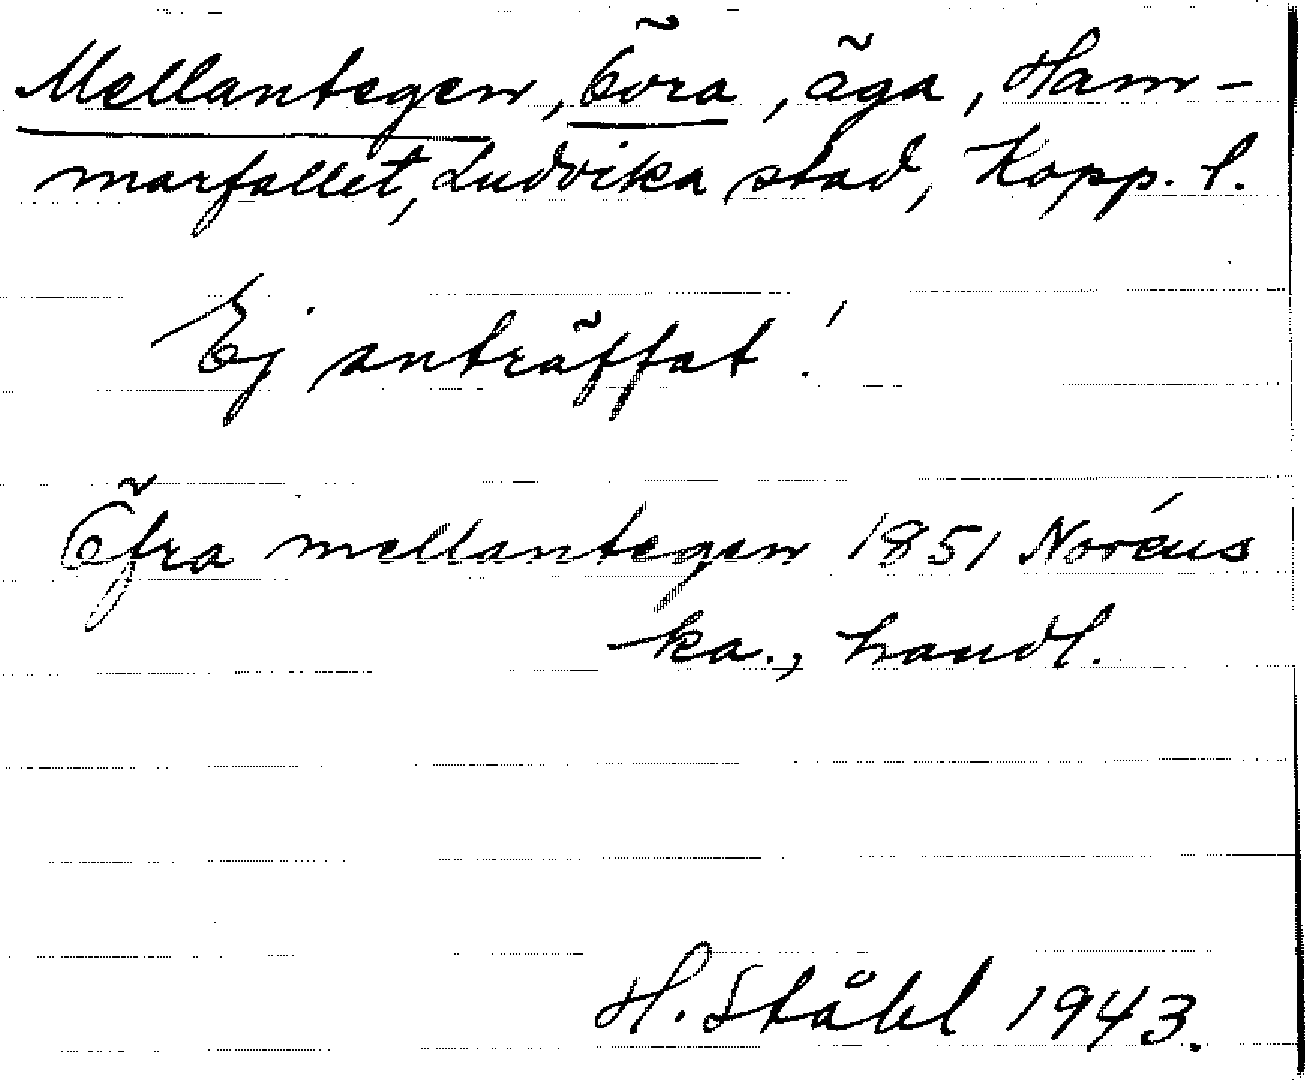 Mellantegen, Övra, äga, Ham-
marfallet, Ludvika stad, Kopp. l.
Ej anträffat!
Öfra mellantegen 1851 Noréus
ka., handl.
H. Ståhl 1943.